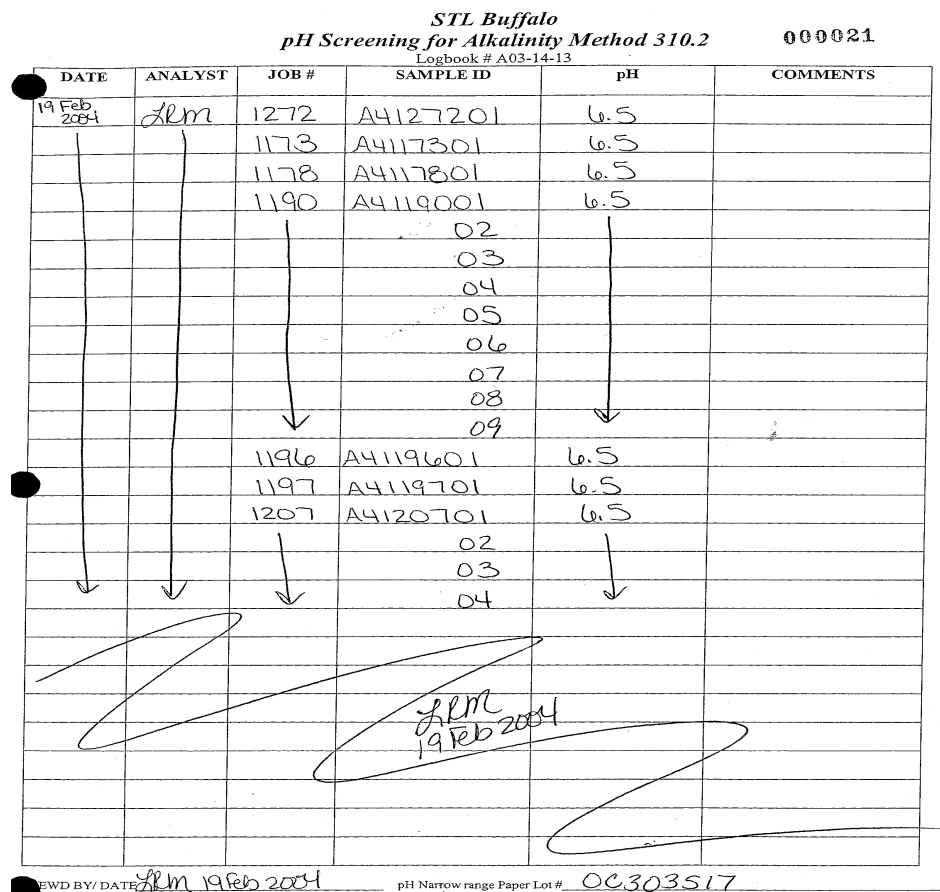 STL Buffalo
pH Screening for Alkalinity Method 310.2 000021
Logbook # A03-14-13
DATE ANALYST JOB # SAMPLE ID pH COMMENTS
19 Feb 2004 LRM 1272 A4127201 6.5
1173 A4117301 6.5
1178 A4117801 6.5
1190 A4119001 6.5
02
03
04
05
06
07
08
09
1196 A4119601 6.5
1197 A4119701 6.5
1207 A4120701 6.5
02
03
04
LRM
19 Feb 2004
EWD BY/ DATE LRM 19 Feb 2004 pH Narrow range Paper Lot # OC303517